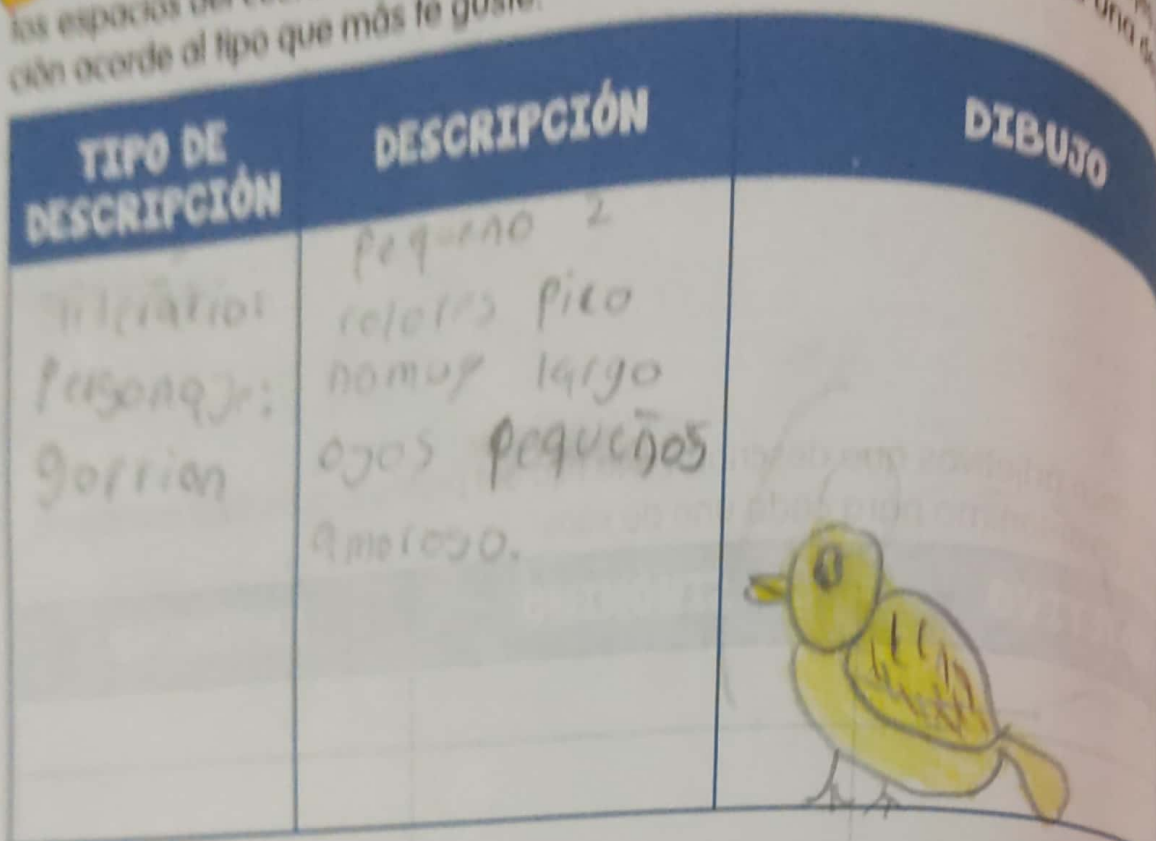 los espacios
ción acorde al tipo que más te guste.
TIPO DE
DESCRIPCIÓN
DESCRIPCIÓN
DIBUJO
literario:
Personaje:
gorrion
Pequeño 2
colores Pico
nomuy largo
ojos pequeños
amoroso.